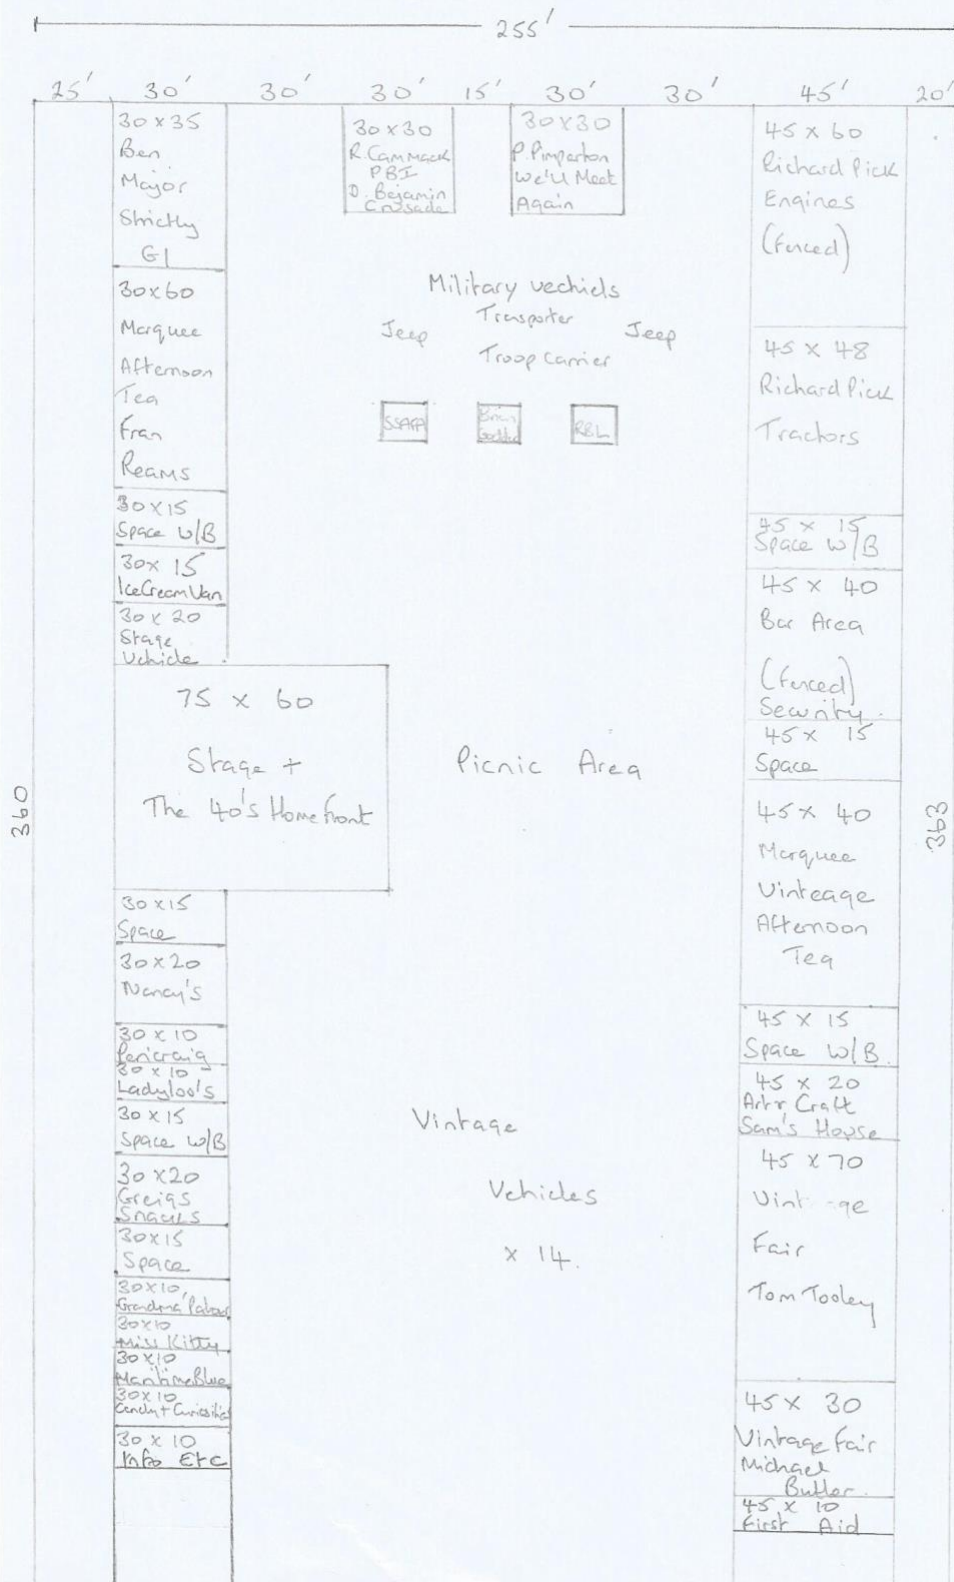 255'
25' 30' 30' 30' 15' 30' 30' 45' 20'
30 x 35
Ben
Major
Strictly
GI
30x60
Marquee
Afternoon
Tea
Fran
Reams
30 x 15
Space W/B
30x 15
Ice Cream Van
30 x 20
Stage
Vehicle
75 x 60
Stage +
The 40's Home Front
30 x 15
Space
30 x 20
Nancy's
30 x 10
Pericraig
30 x 10
Ladyloo's
30 x 15
Space W/B
30 x 20
Greigs
Snacks
30 x 15
Space
30 x 10
Grandma
30x10
Miss Kitty
30 x 10
Maritime Blue
30 x 10
Candy + Curiosities
30 x 10
Info Etc
360
30 x 30
R. Cammack
PBI
D. Bejamin
Crusade
30 x 30
P. Pimperton
We'll Meet
Again
Military vechicls
Jeep Transporter Jeep
Troop Carrier
SSAFA
Brian
RBL
Picnic Area
Vintage
Vehicles
x 14.
45 x 60
Richard Pick
Engines
(fenced)
45 x 48
Richard Pick
Tractors
45 x 15
Space W/B
45 x 40
Bar Area
(fenced)
Security
45 x 15
Space
45 x 40
Marquee
Vinteage
Afternoon
Tea
45 x 15
Space W/B
45 x 20
Art & Craft
Sam's House
45 x 70
Vintage
Fair
Tom Tooley
45 x 30
Vintage Fair
Michael
Butler
45 x 10
First Aid
363